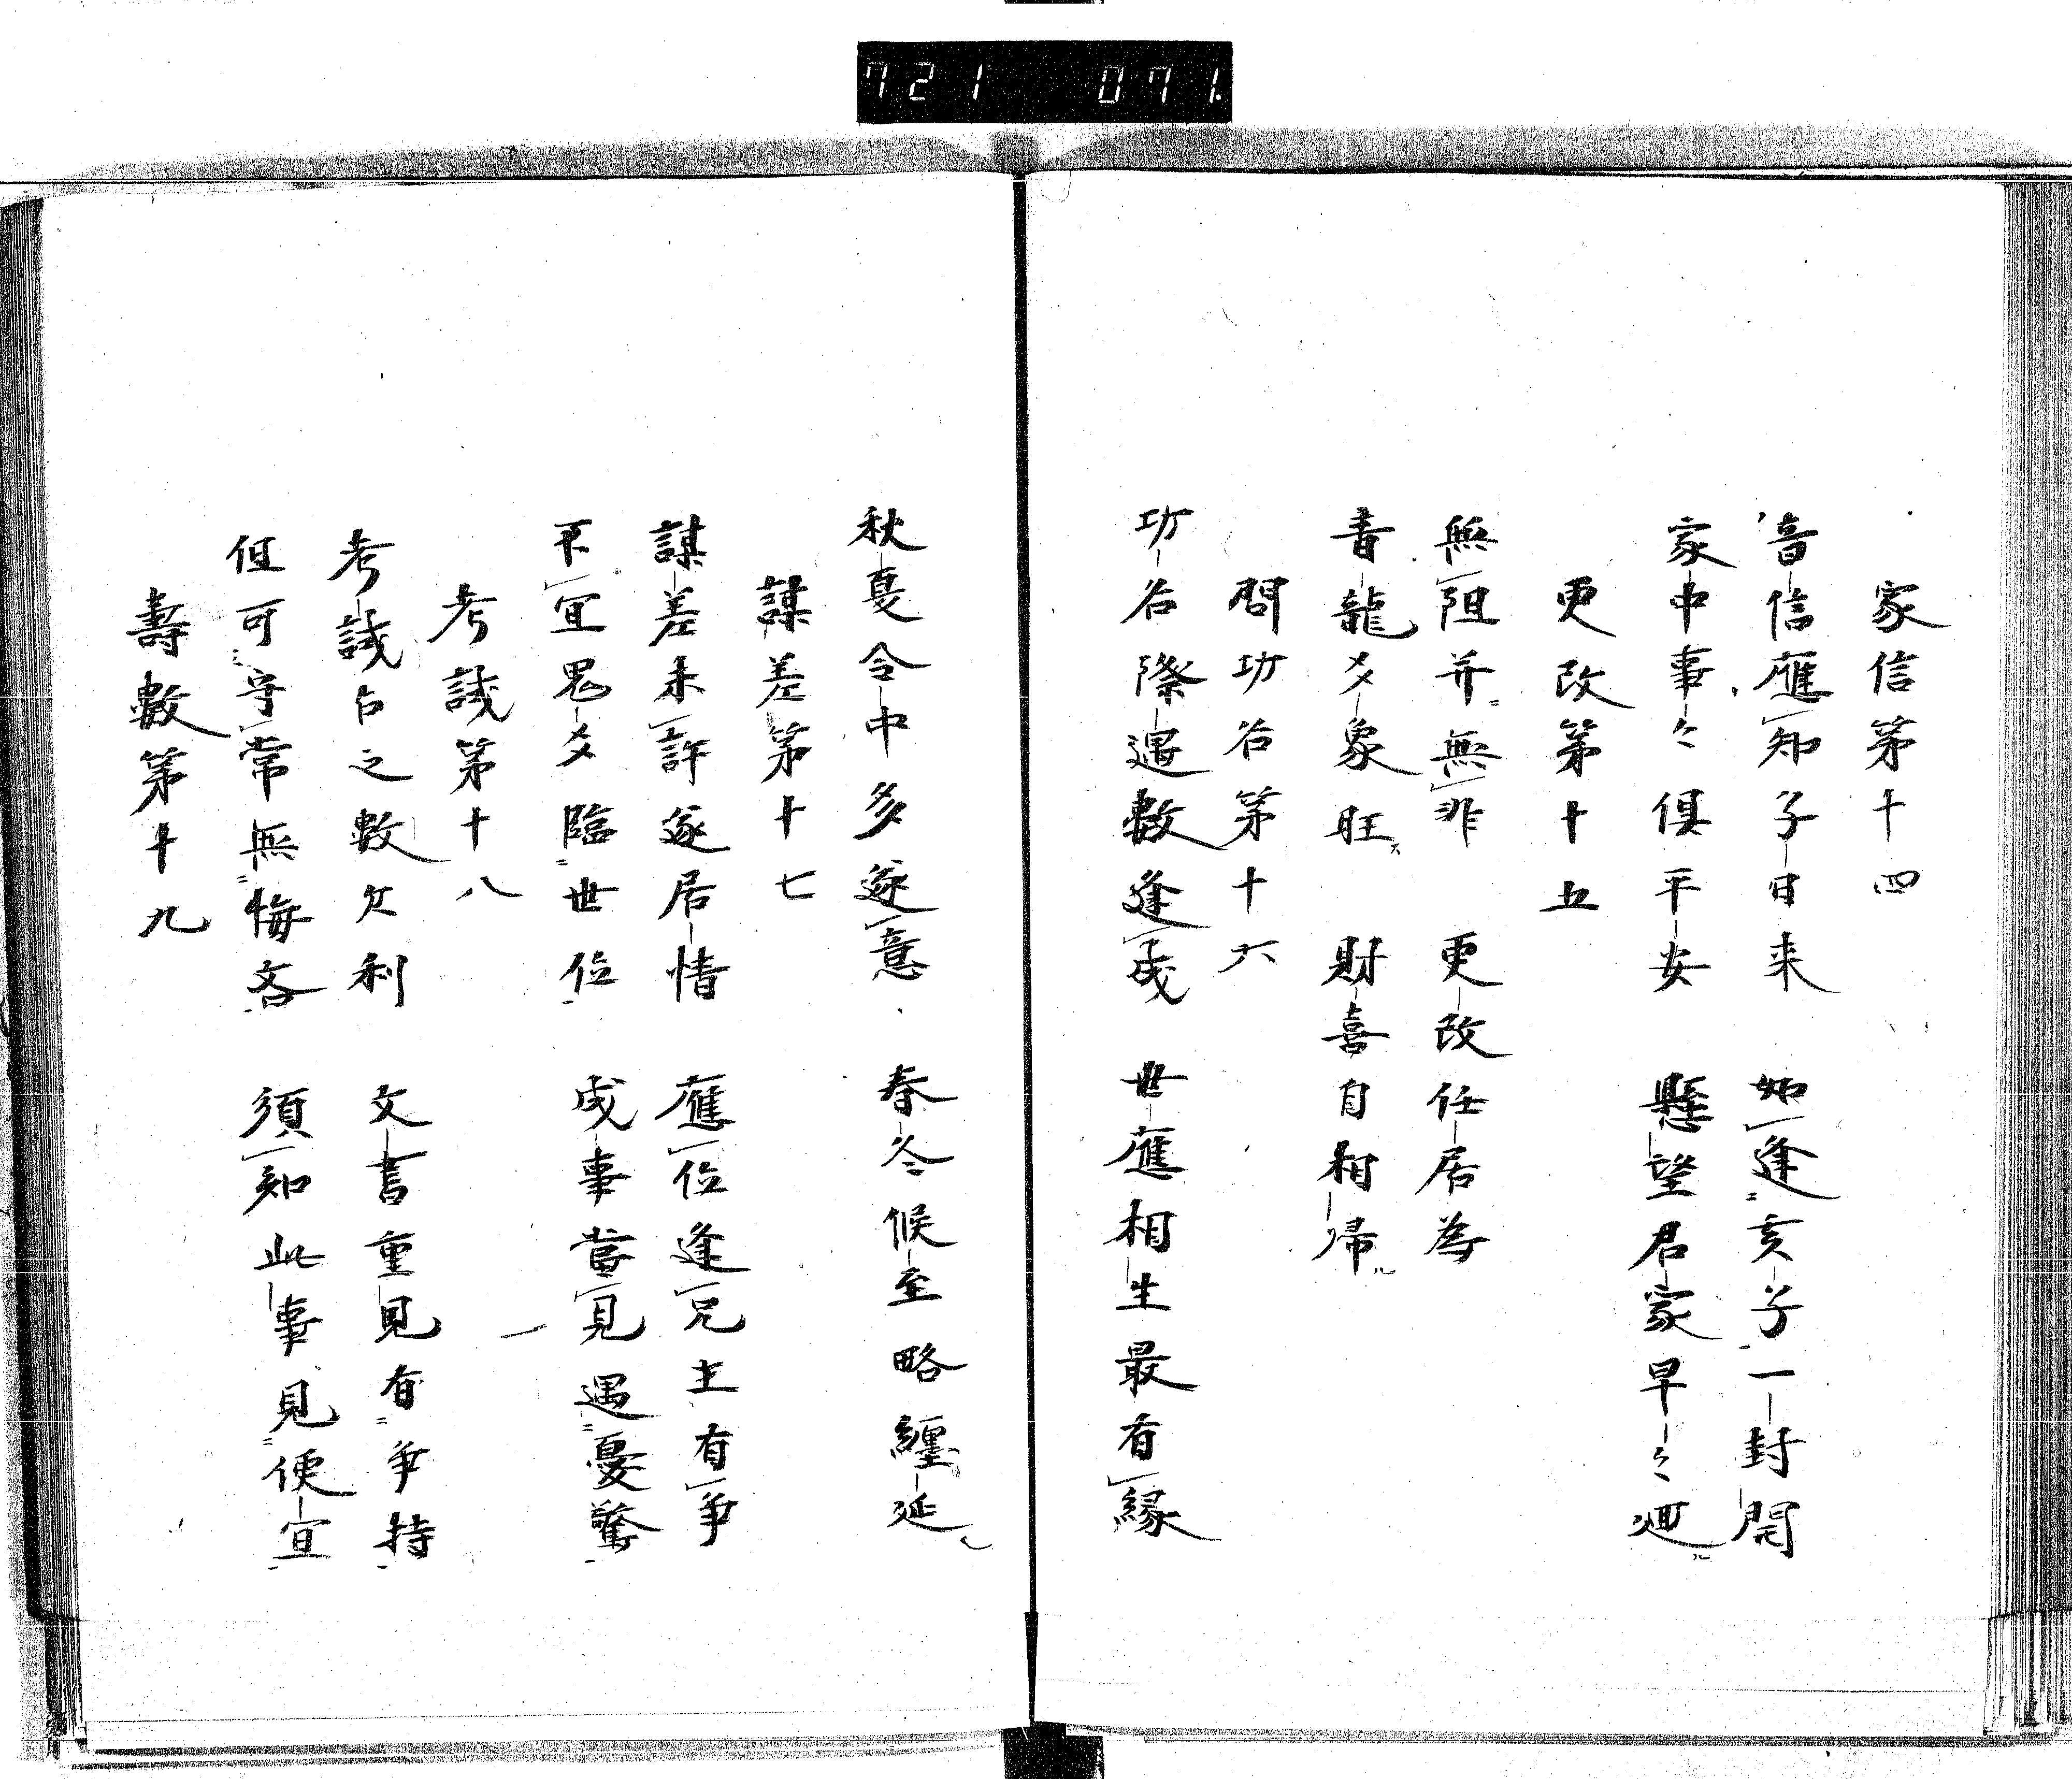 721 071.
家信第十四
音信應知子日来　如逢亥子一封開
家中事々俱平安　懸望君家早々廻
更改第十五
無阻并無非　更改任居為
青龍爻象旺　財喜自相帰
問功名第十六
功名際遇數逢成　世應相生最有縁
秋夏令中多遂意　春冬候至略纏延
謀差第十七
謀差未許遂居情　應位逢兄主有争
不宜鬼爻臨世位　成事當見遇憂驚
考誠第十八
考誠占之數欠利　文書重見有争持
但可守常無悔吝　須知此事見便宜
壽數第十九